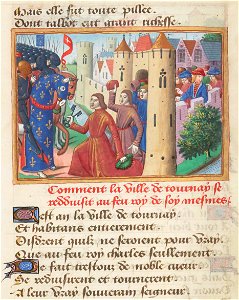 Mais elle fut toute pillee
Dont talbot eut grant richesse.
Comment la ville de tournay se
reduisit au feu roy de soy mesmes
est an la ville de tournay
Et habitans entierement
Disrent quilz ne seroient pour vray
Que au feu roy charles seullement
Se fait trestout de noble cueur
Se reduisirent et tournerent
A leur vray souverain seigneur